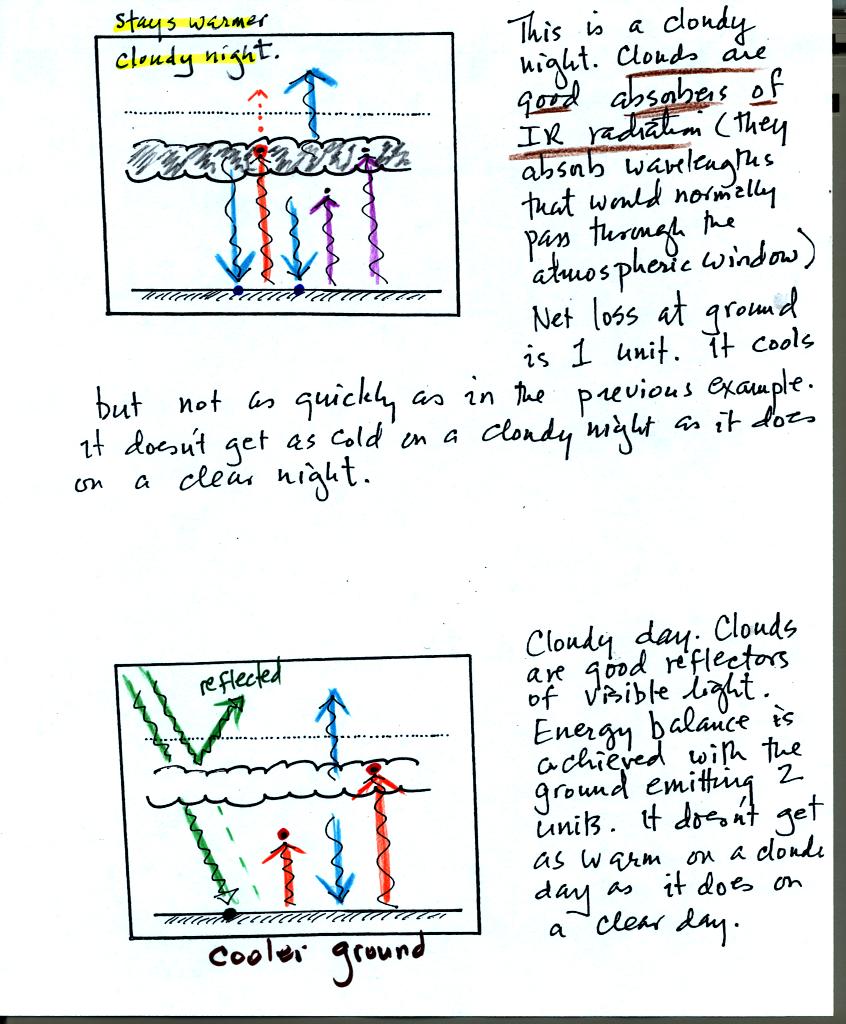 Stays warmer
cloudy night.
This is a cloudy
night. Clouds are
good absorbers of
IR radiation (they
absorb wavelengths
that would normally
pass through the
atmospheric window)
Net loss at ground
is 1 unit. It cools
but not as quickly as in the previous example.
It doesn't get as cold on a cloudy night as it does
on a clear night.
reflected
Cloudy day. Clouds
are good reflectors
of visible light.
Energy balance is
achieved with the
ground emitting 2
units. It doesn't get
as warm on a cloudy
day as it does on
a clear day.
cooler ground